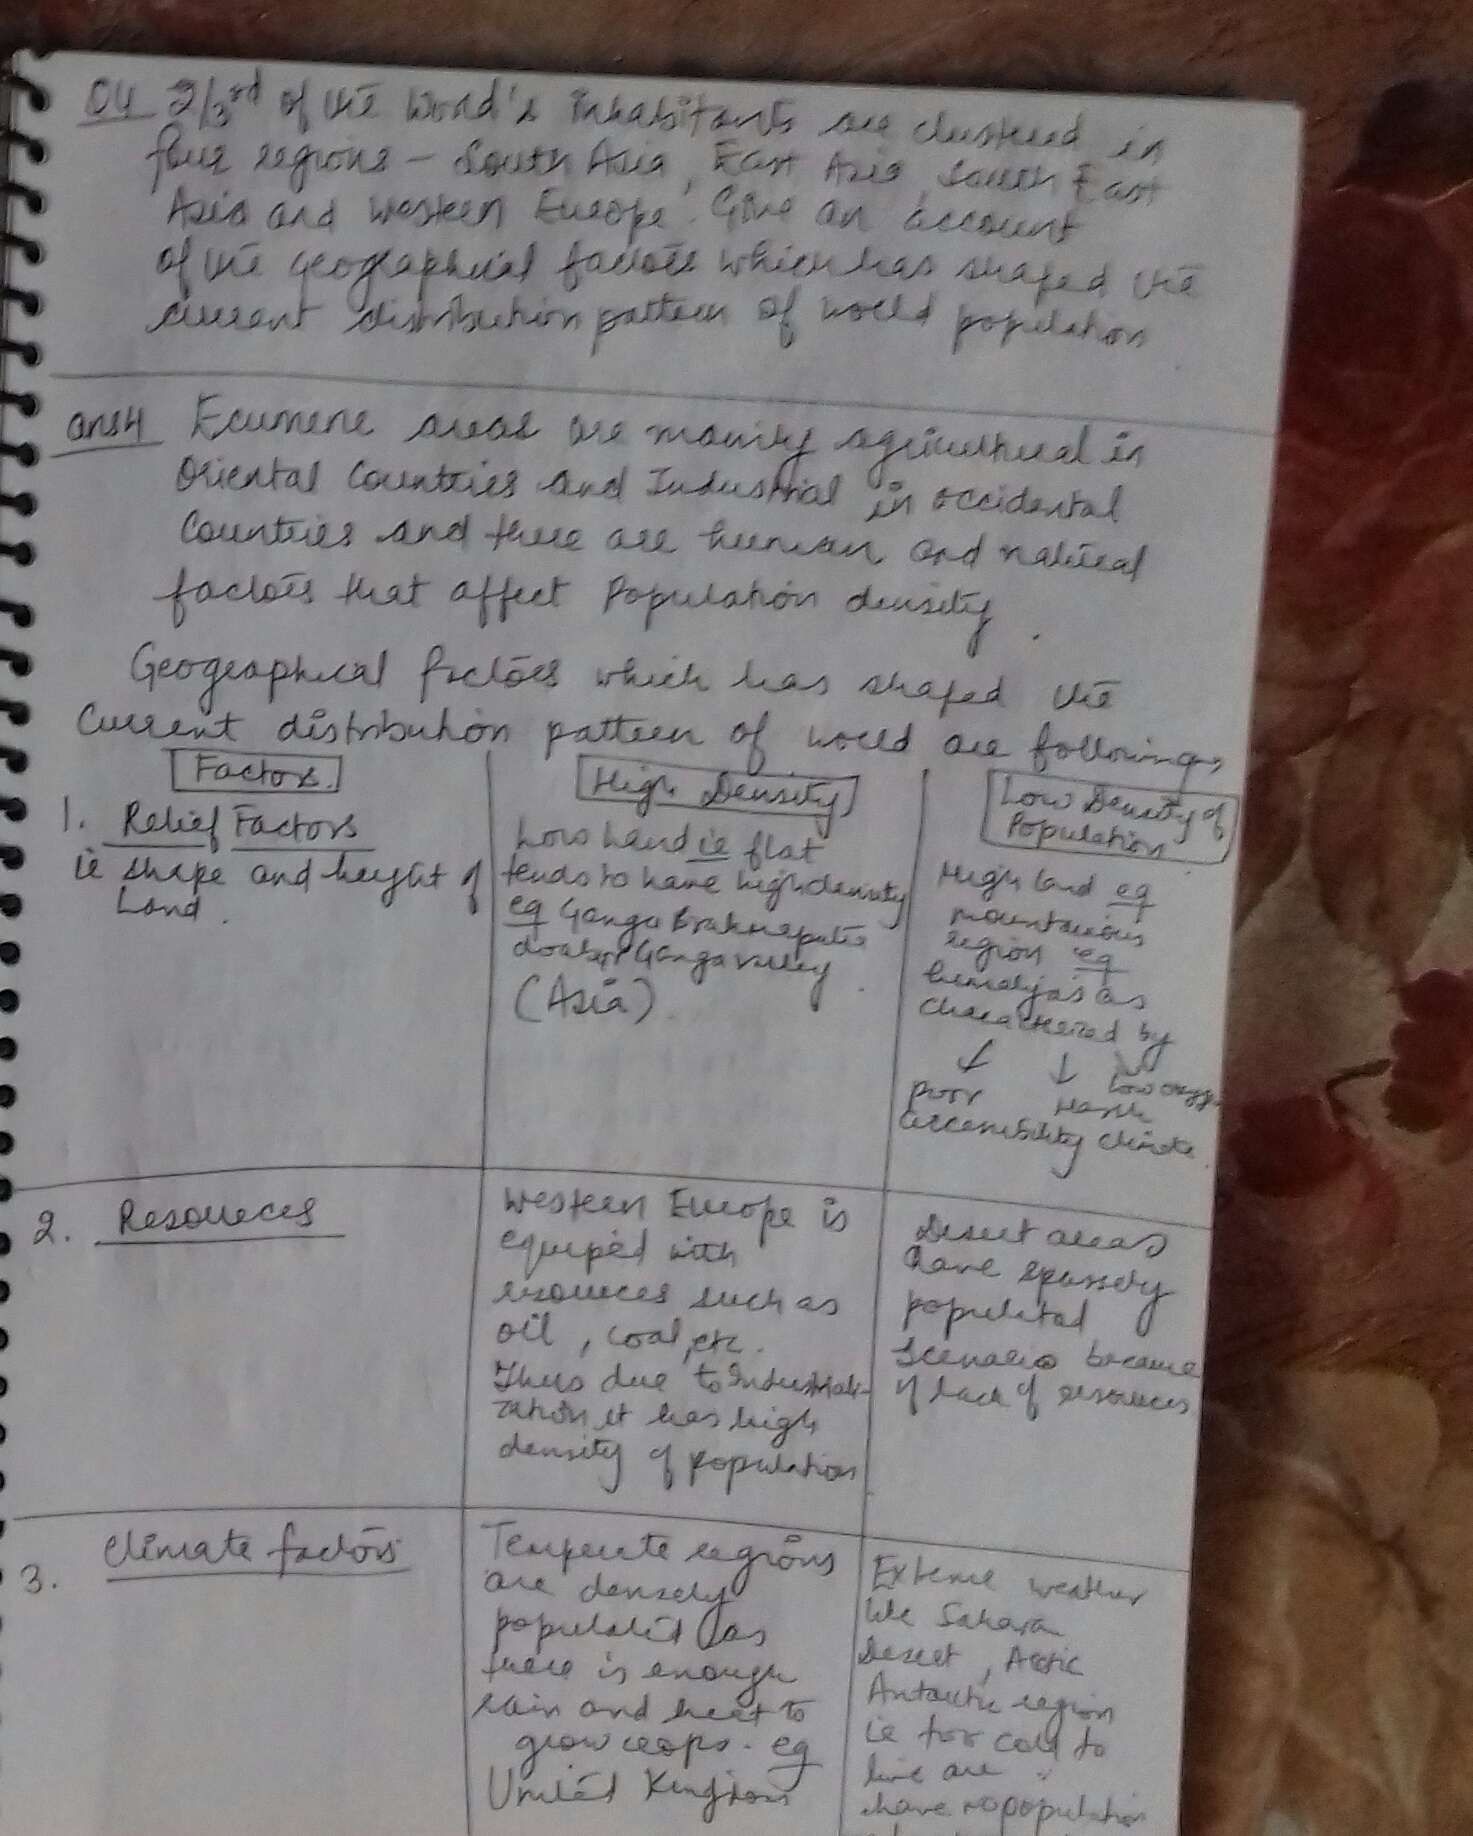 Q4 2/3rd of the World's inhabitants are clustered in
four regions - South Asia, East Asia, South East
Asia and Western Europe. Give an account
of the geographical factors which has shaped the
current distribution pattern of world population
Ans4 Ecumene areas are mainly agricultural in
Oriental Countries and Industrial in occidental
Countries and there are human and natural
factors that affect Population density.
Geographical factors which has shaped the
Current distribution pattern of world are following,
Factors.
1. Relief Factors
ie shape and height of
Land.
High Density
Low Land ie flat
tends to have high density
eg Ganga Brahmaputra
doab or Ganga valley.
(Asia).
Low Density of
Population
High land eg
mountainous
region eg
himalyas as
characterized by
↓ ↓ ↓
poor Harsh Low oxyg
accessibility climate.
2. Resources
Western Europe is
equiped with
resources such as
oil, coal, etc.
Thus due to Industriali-
zation it has high
density of population
Desert areas
have sparsely
populated
Scenario because
of lack of resources
3. Climate factors
Temperate regions
are densely
populated as
there is enough
rain and heat to
grow crops. eg
United Kingdom
Extreme weather
like Sahara
Desert, Arctic
Antarctic region
ie too cold to
live are
have no population